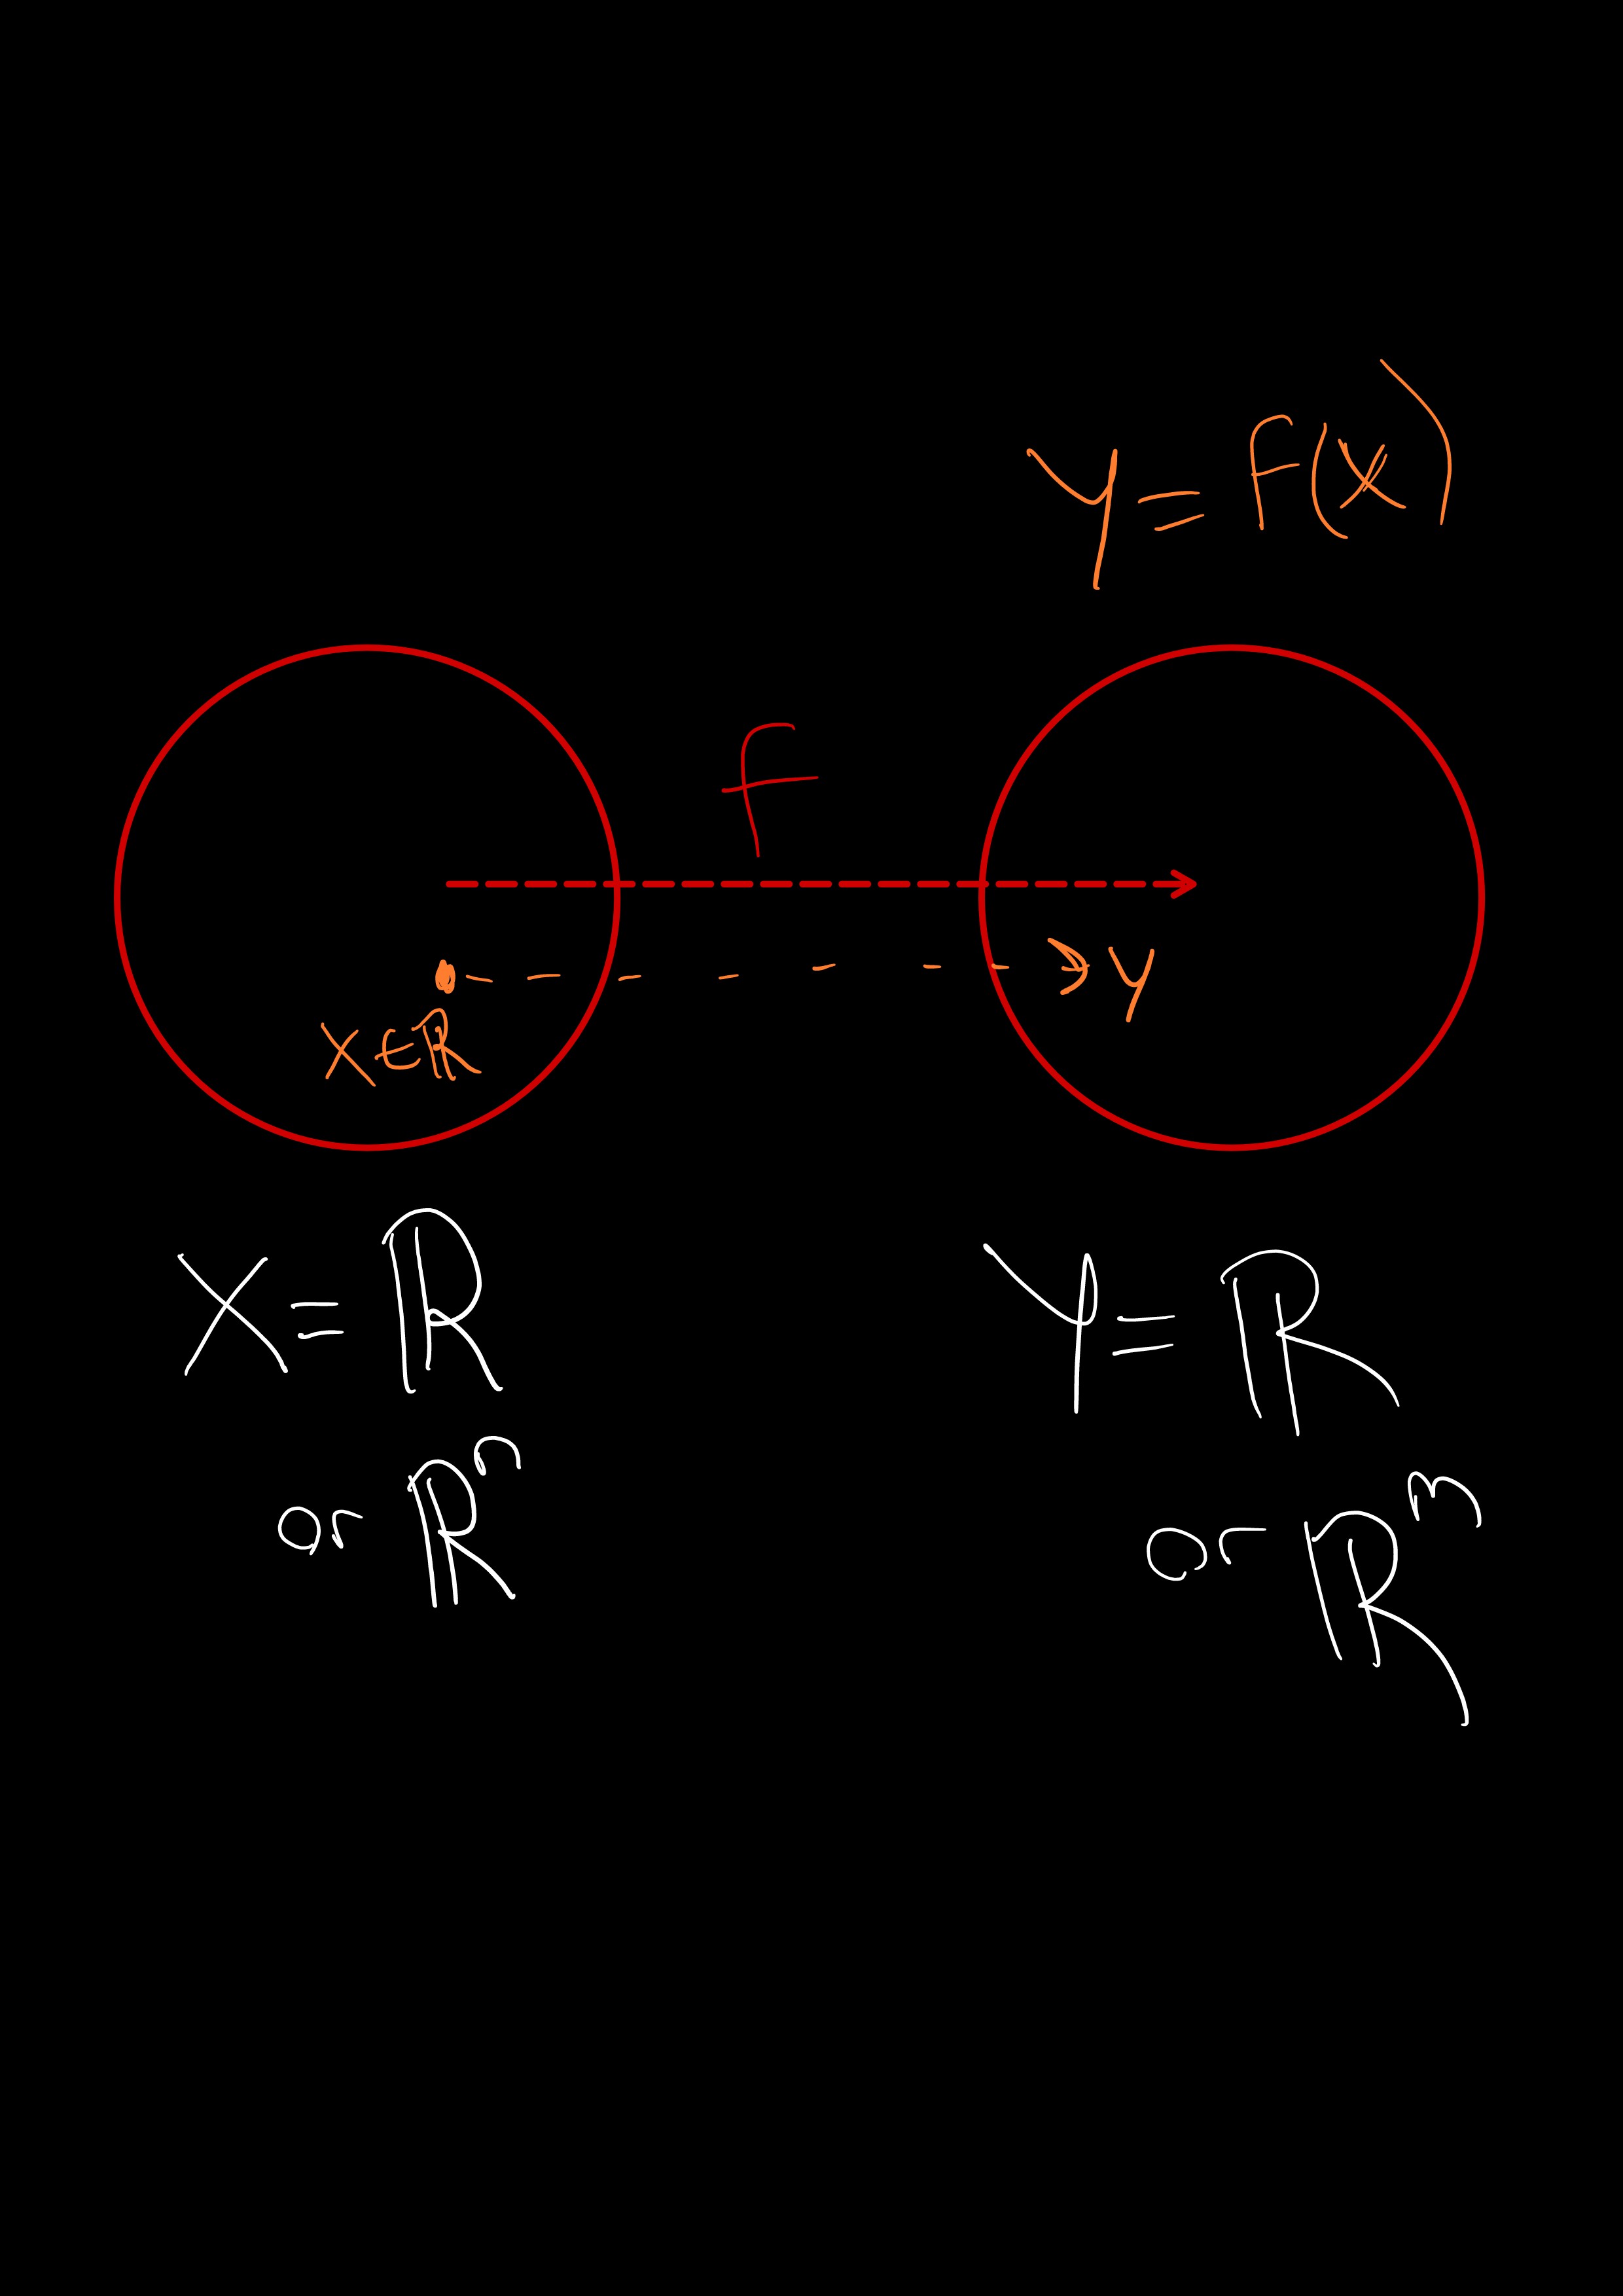 y = f(x)
f
x ∈ ℝ
y
X = ℝ
or ℝⁿ
Y = ℝ
or ℝᵐ